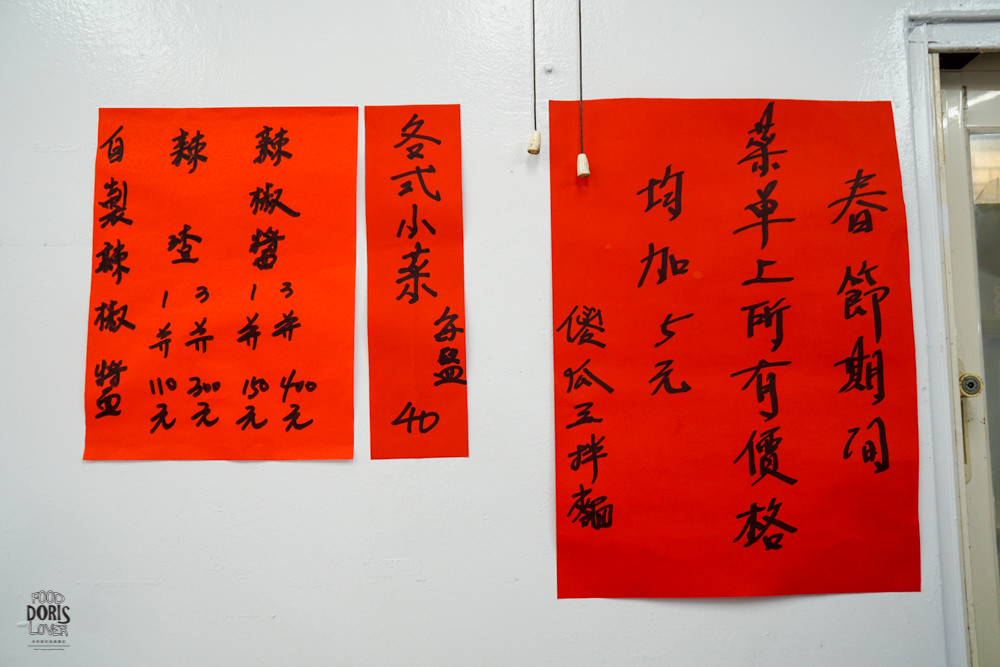 春節期間
菜單上所有價格
均加5元
傻瓜王拌麵
各式小菜
每盤
40
辣椒醬
3并400元
1并150元
辣渣
3并300元
1并110元
自製辣椒醬
FOOD
DORIS
LOVER